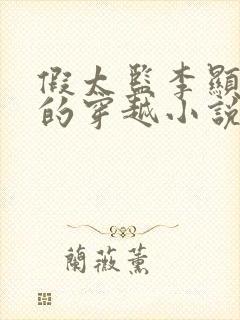 假太監李顯
的穿越小說
蘭薇薰